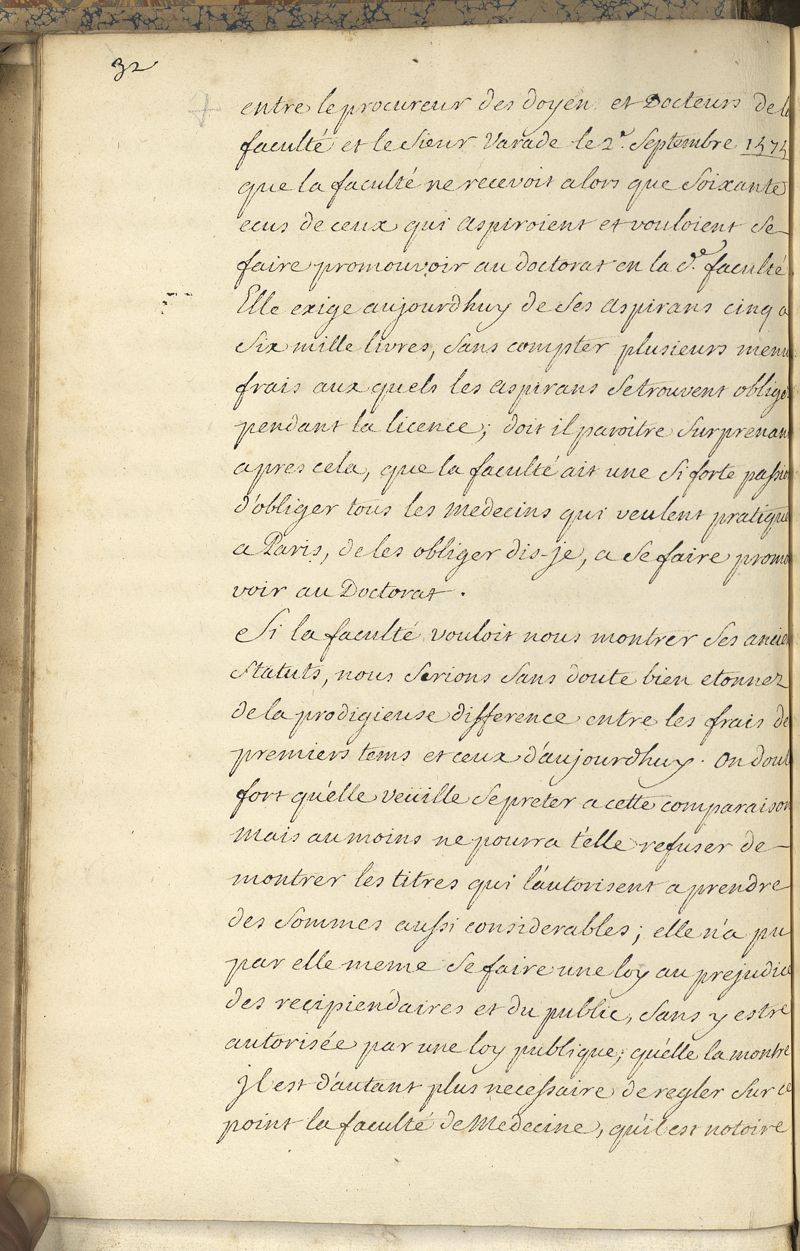 32
entre le procureur des doyen et Docteurs de la
faculté et le Sieur Varade le 2.e Septembre 1575
que la faculté ne recevoit alors que Soixante
ecus de ceux qui aspiroient et vouloient se
faire promouvoir au doctorat en la d.e faculté
Elle exige aujourdhuy de ses aspirans cinq a
Six mille livres, sans compter plusieurs menu
frais aux quels les aspirans se trouvent oblige
pendant la licence; doit il paroitre Surprenan
apres cela, que la faculté ait une Si forte passio
d'obliger tous les medecins qui veulent pratique
a Paris, de les obliger dis-je, a se faire promo
voir au Doctorat.
Si la faculté vouloit nous montrer ses ancien
Statuts, nous serions sans doute bien etonnez
de la prodigieuse difference entre les frais de
premiers tems et ceux d'aujourdhuy. On dout
fort qu'elle veüille se preter a cette comparaison
mais au moins ne pourra t'elle refuser de
montrer les titres qui l'autorisent a prendre
des Sommes aussi considerables; elle n'a pu
par elle meme se faire une loy au prejudice
des recipiendaires et du public, sans y estre
autorisée par une loy publique, qu'elle la montre
Jl est d'autant plus necessaire de regler sur ce
point la faculté de Medecine, qu'il est notoire